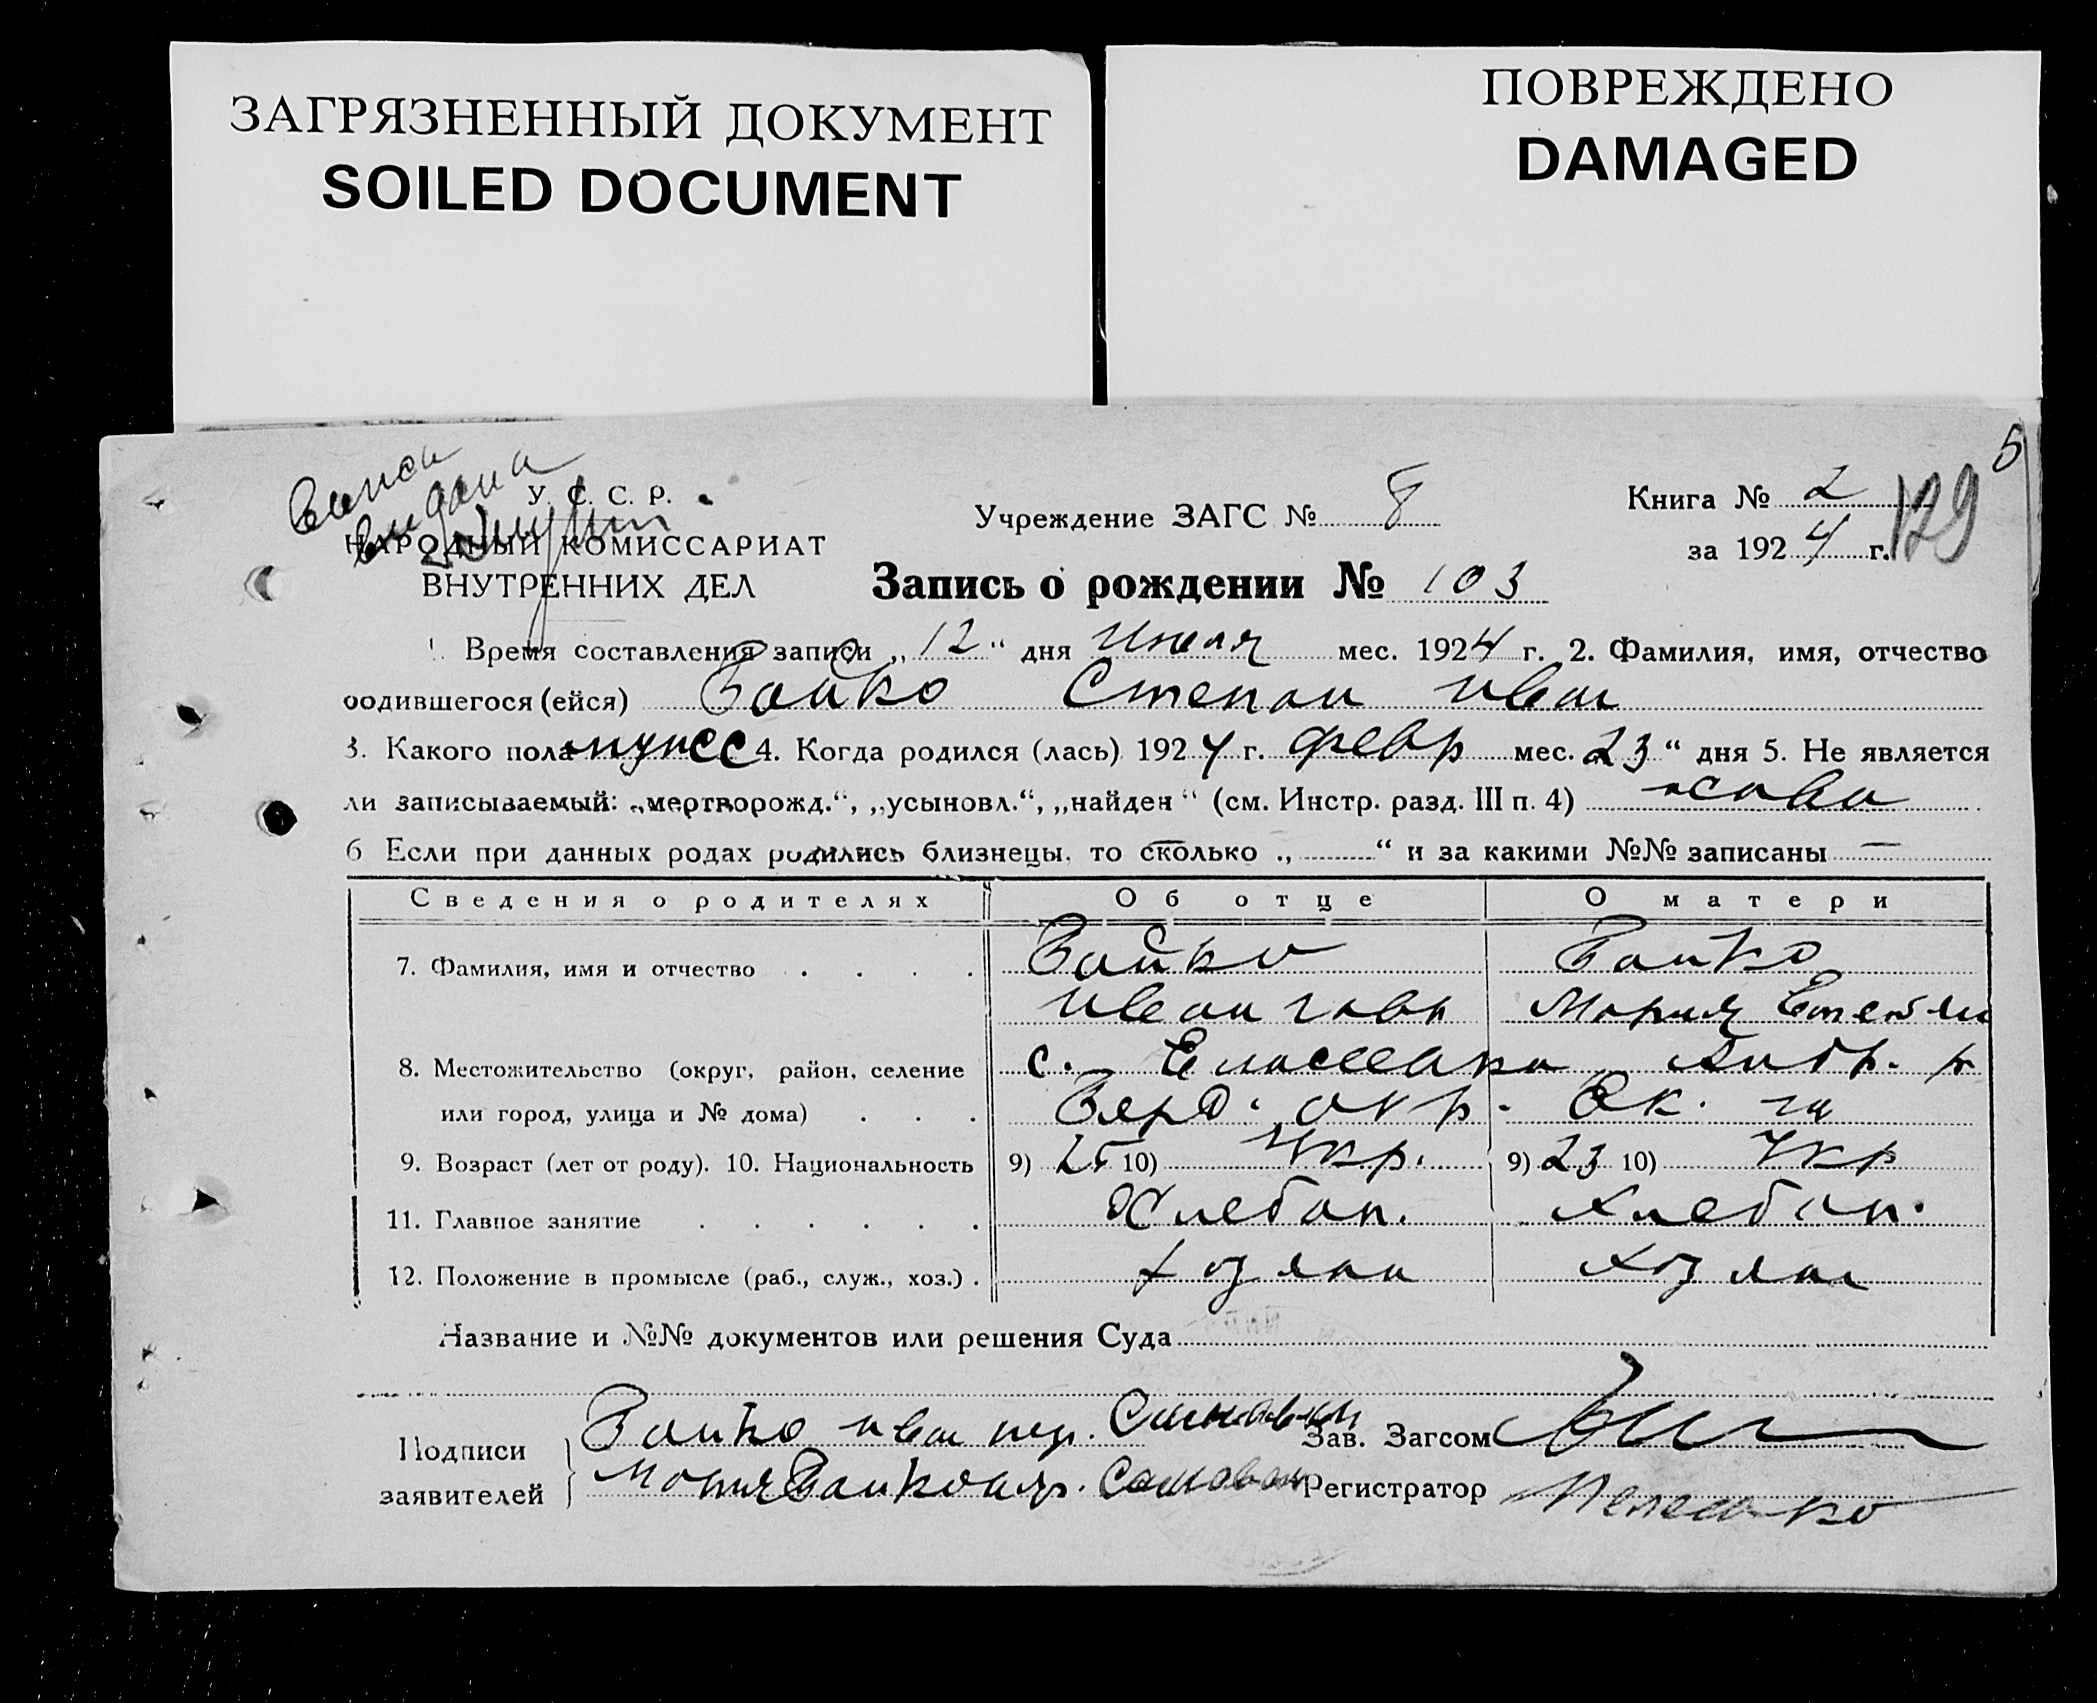 ЗАГРЯЗНЕННЫЙ ДОКУМЕНТ
SOILED DOCUMENT
ПОВРЕЖДЕНО
DAMAGED
5
129
выдана
У. С. С. Р.
НАРОДНЫЙ КОМИССАРИАТ
ВНУТРЕННИХ ДЕЛ
Учреждение ЗАГС № 8
Книга № 2
за 1924 г.
Запись о рождении № 103
1. Время составления записи „12“ дня июля мес. 1924 г. 2. Фамилия, имя, отчество
родившегося (ейся) Бойко Степан Иван
3. Какого пола мужсс 4. Когда родился (лась) 1924 г. февр мес. 23“ дня 5. Не является
ли записываемый: „мертворожд.“, „усыновл.“, „найден“ (см. Инстр. разд. III п. 4)
6 Если при данных родах родились близнецы, то сколько „—“ и за какими №№ записаны —
Сведения о родителях Об отце О матери
7. Фамилия, имя и отчество . . . . Бойко Бойко
Иван Мария
8. Местожительство (округ, район, селение с. Андр. р
или город, улица и № дома) . . . Берд. окр. Ек. г.
9. Возраст (лет от роду). 10. Национальность 9) 25 10) Укр. 9) 23 10) Укр
11. Главное занятие . . . . . . Хлебоп. Хлебоп.
12. Положение в промысле (раб., служ., хоз.) . хозяин хозяин
Название и №№ документов или решения Суда
Подписи заявителей
Бойко Иван
Мария Бойко
Зав. Загсом
Регистратор